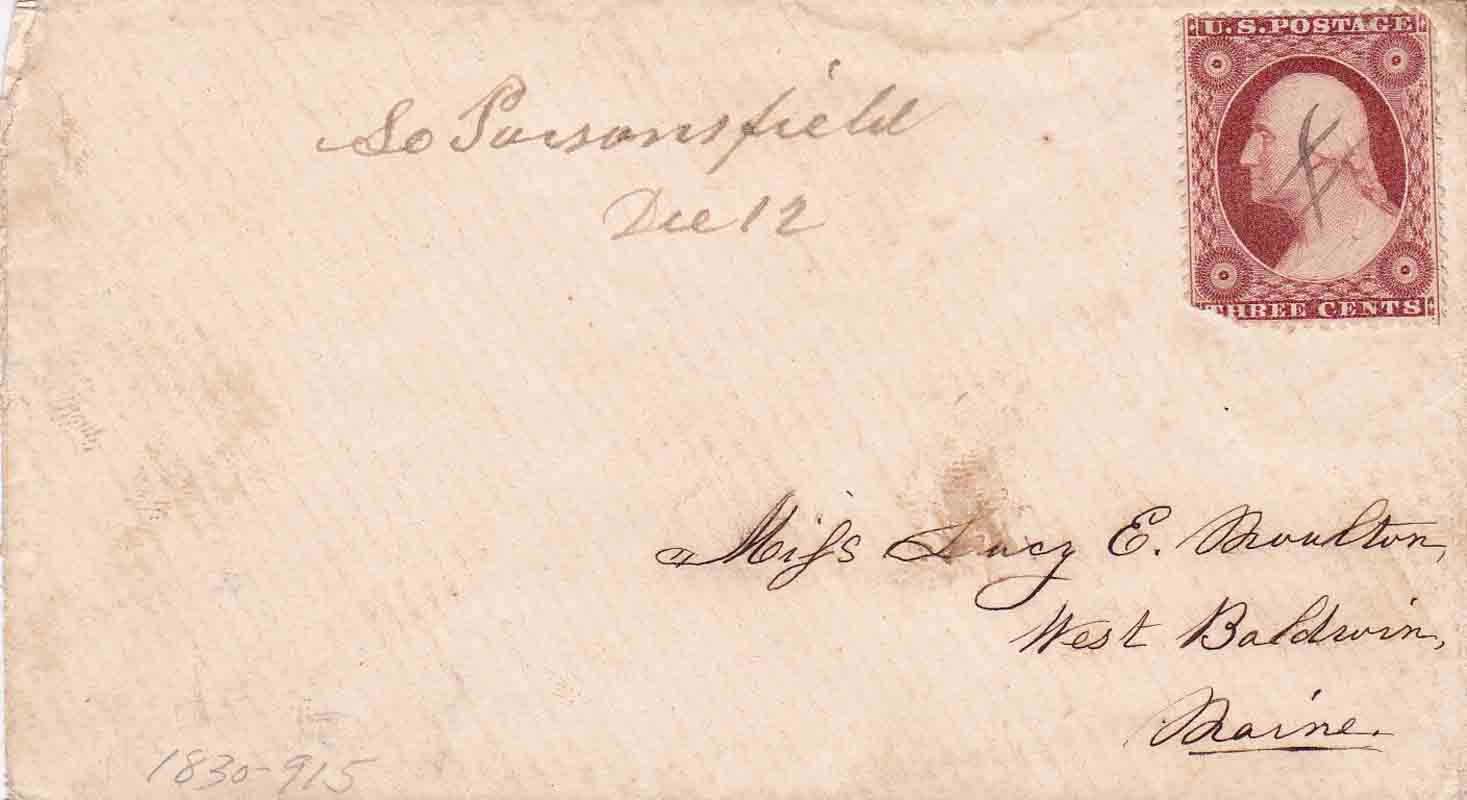 U.S. POSTAGE
THREE CENTS
So Parsonsfield
Dec 12
Miss Lucy E. Moulton,
West Baldwin,
Maine.
1830-915